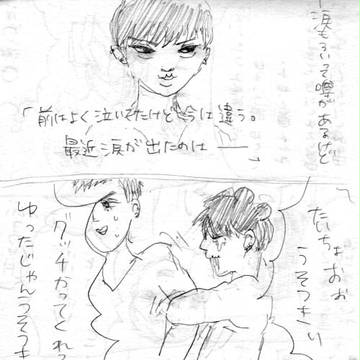 涙もろいって噂があるけど
「前はよく泣いてたけど今は違う。
最近涙が出たのは ──」
たいちょおぉ
うそつきい
グッチかってくれる
ゆったじゃんうそつき